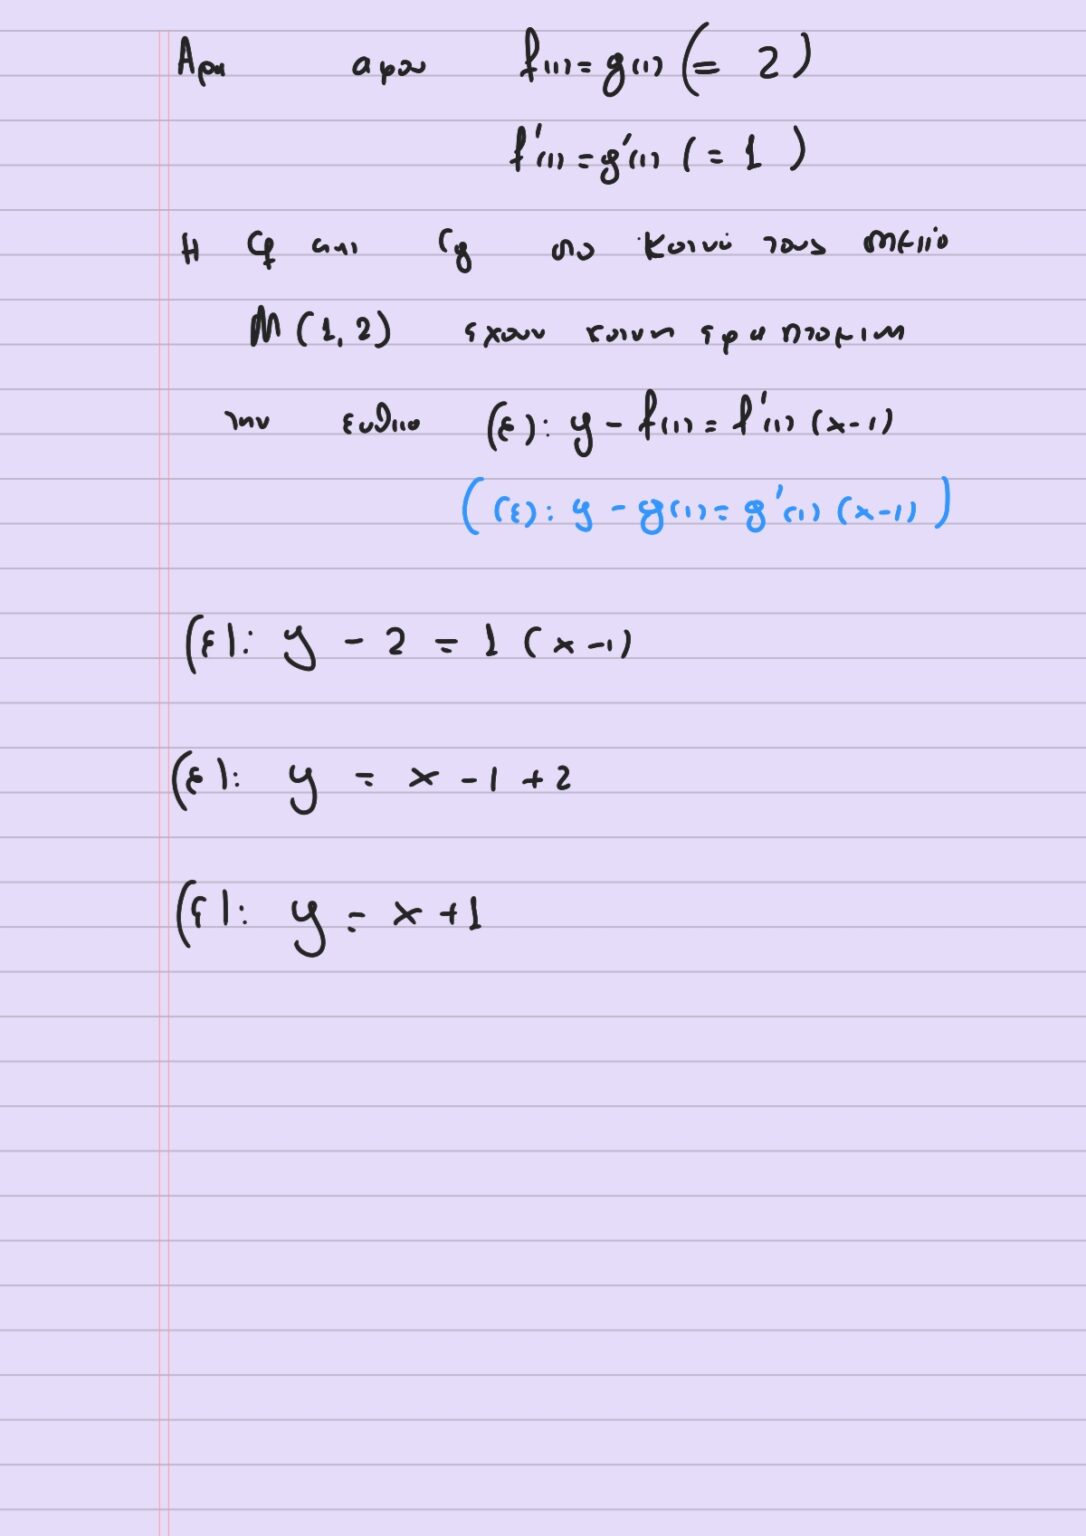 Αρα αφου f(1)=g(1) (= 2)
f'(1)=g'(1) (= 1 )
Η Cf και Cg στο κοινό τους σημείο
M(1,2) εχουν κοινη εφαπτομενη
την ευθεια (ε): y - f(1) = f'(1) (x-1)
((ε): y - g(1) = g'(1) (x-1) )
(ε): y - 2 = 1 (x-1)
(ε): y = x - 1 + 2
(ε): y = x + 1